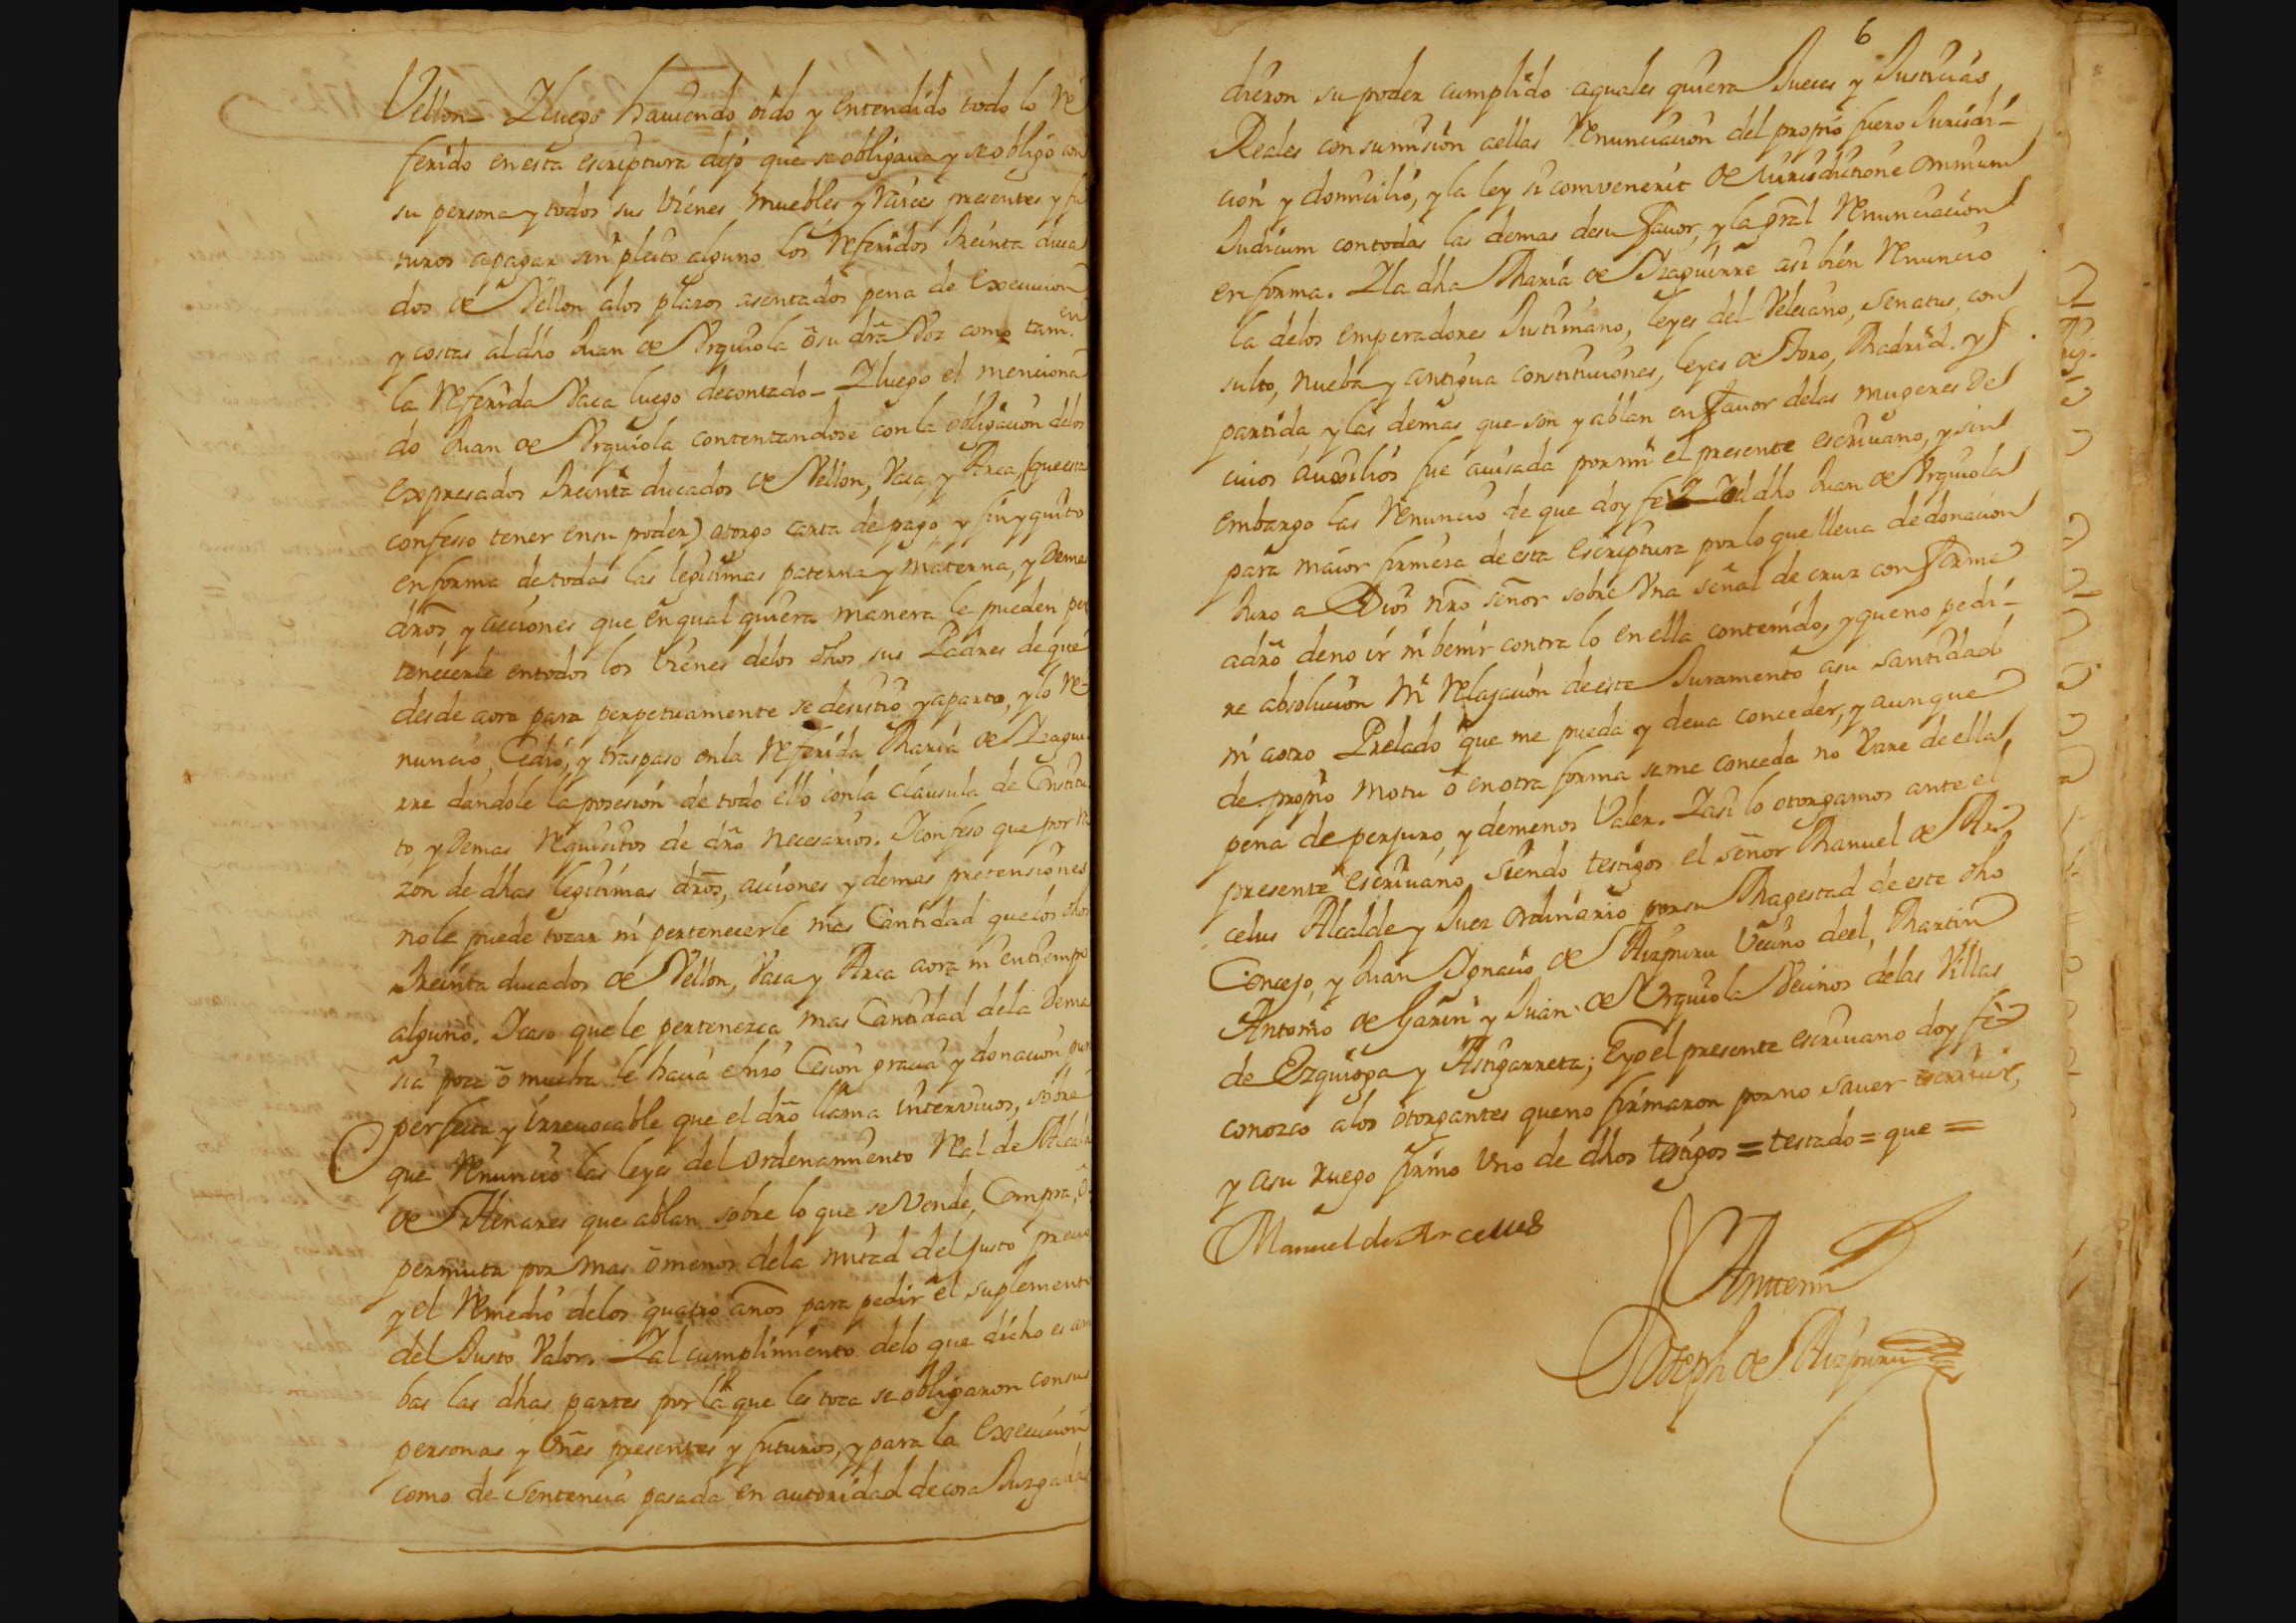 Vellon_ Yluego haviendo oido y entendido todo lo re
ferido enesta escriptura dijo que se obligava y se obligo con
su persona y todos sus vienes muebles y raices presentes y fu
turos apagar sin pleito alguno los referidos treinta duca
dos de Vellon alos plazos asentados pena de execucion
y costas al dho Juan de Vrquiola ô su dra Voz como tam.en
la referida Vaca luego decontado_ Yluego el menciona
do Juan de Vrquiola contentandose con la obligacion delos
expresados treinta ducados de Vellon, Vaca, y Arca, (que esta
confesso tener ensu poder) otorgo carta de pago, y fin y quito
en forma de todas las legitimas paterna y materna, y Demas
dros y acciones que en qual quiera manera le pueden per
tenecerle entodos los vienes delos dhos sus Padres de que
desde aora para perpetuamente se desistio y aparto, y lo re-
nuncio, Cedio, y traspaso enla referida Maria de Yzagui
rre dandole la posesion de todo ello con la clausula de Constitu
to, y Demas requisitos de dro necesarios. Yconfeso que por ra
zon de dhas legitimas dros, acciones y demas pretensiones
nole puede tocar ni pertenecerle mas Cantidad que los dhos
treinta ducados de Vellon, Vaca y Arca aora ni entiempo
alguno. Ycaso que le pertenezca mas Cantidad dela Dema
sia poca ô mucha le hacia e hizo Cesion gracia y donacion pura
perfecta y irrevocable que el dro llama intervivos, sobre
que renuncio las leyes del ordenamiento real de Alcala
de Henares que ablan sobre lo que se vende, Compra, ô
permuta por mas ô menos dela mitad del Justo precio
y el remedio delos quatro años para pedir el suplemento
del Justo Valor. Yal cumplimiento delo que dicho es am
bas las dhas partes por la que les toca se obligaron consus
personas y vnes presentes y futuros, y para la execucion
como de sentencia pasada en autoridad de cosa Juzgada
6
dieron su poder cumplido aquales quiera Jueces y Justicias
Reales con sumision aellas renunciacion del propio fuero Jurisdi-
cion y domicilio, y la ley si comvenerit de Jurisdictione omnium
Judicum contodas las demas desu favor, y la gral renunciacion
en forma. Yla dha Maria de Yzaguirre asi bien renuncio
la delos emperadores Justiniano, leyes del Veleiano, senatus, con
sulto, nueba y antigua constituciones, leyes de Toro, Madrid. y
partida y las demas que son y ablan en favor delas mugeres de
cuios auxilios fue avisada por mi el presente escrivano, y sin
embargo las renuncio de que doy fee Yel dho Juan de Vrquiola
para maior firmeza de esta escriptura por lo que lleva de donacion
Juro a Dios nro señor sobre vna señal de cruz conforme
adro deno ir ni benir contra lo en ella contenido, y que no pedi-
re absolucion ni relajacion de este Juramento asu santidad
ni aotro Prelado que me pueda y deva conceder, y aunque
de propio motu ô en otra forma se me conceda no Vsare de ella,
pena de perjuro, y demenos Valer. Yasi lo otorgamos ante el
presente escrivano, siendo testigos el señor Manuel de Ar
celus Alcalde y Juez ordinario por su Magestad de este dho
Concejo, y Juan Ygnacio de Aizpuru Vecino deel, Martin
Antonio de Garin y Juan de Vrquiola Vecinos delas Villas
de Ezquioga y Astigarreta; Eyo el presente escrivano doy fe
conozco alos otorgantes queno firmaron por no saver escrivir,
y asu ruego firmo Vno de dhos testigos = testado = que =
Manuel de Arcelus
Antemi
Joseph de Aizpuru